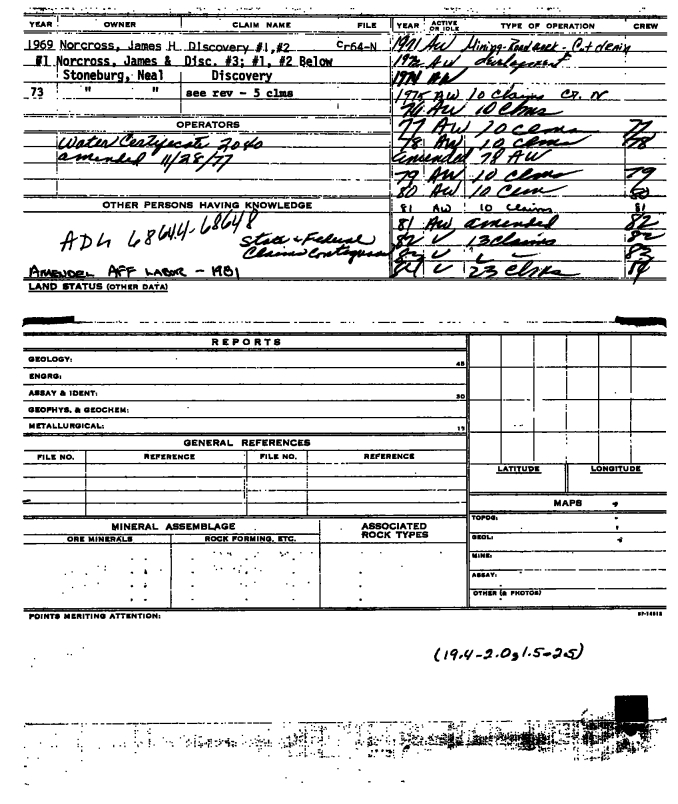 YEAR OWNER CLAIM NAME FILE
1969 Norcross, James H. Discovery #1,#2 Cr64-N
#1 Norcross, James & Disc. #3; #1, #2 Below
Stoneburg, Neal Discovery
73 " " see rev - 5 clms
OPERATORS
Water Certificate 2040
amended 11/28/77
OTHER PERSONS HAVING KNOWLEDGE
ADL 68644-68648
State & Federal
Claims Contiguous
AMENDED AFF LABOR - 1981
LAND STATUS (OTHER DATA)
YEAR ACTIVE OR IDLE TYPE OF OPERATION CREW
1971 AW Mining-Road work - Cat
1972 AW development
1974 AW
1975 AW 10 Claims CR. N
76 AW 10 Clms
77 AW 10 clms 77
78 AW 10 clms 78
amended 78 AW
79 AW 10 clms 79
80 AW 10 Clm 80
81 AW 10 Claims 81
81 AW amended 82
82 13 claims 82
83
84 23 clms 84
REPORTS
GEOLOGY: 45
ENGRG:
ASSAY & IDENT: 30
GEOPHYS. & GEOCHEM:
METALLURGICAL: 15
GENERAL REFERENCES
FILE NO. REFERENCE FILE NO. REFERENCE
LATITUDE LONGITUDE
MINERAL ASSEMBLAGE
ORE MINERALS ROCK FORMING, ETC.
ASSOCIATED ROCK TYPES
MAPS
TOPOG:
GEOL:
MINE:
ASSAY:
OTHER (& PHOTOS)
POINTS MERITING ATTENTION:
(19.4-2.0,1.5-2.5)